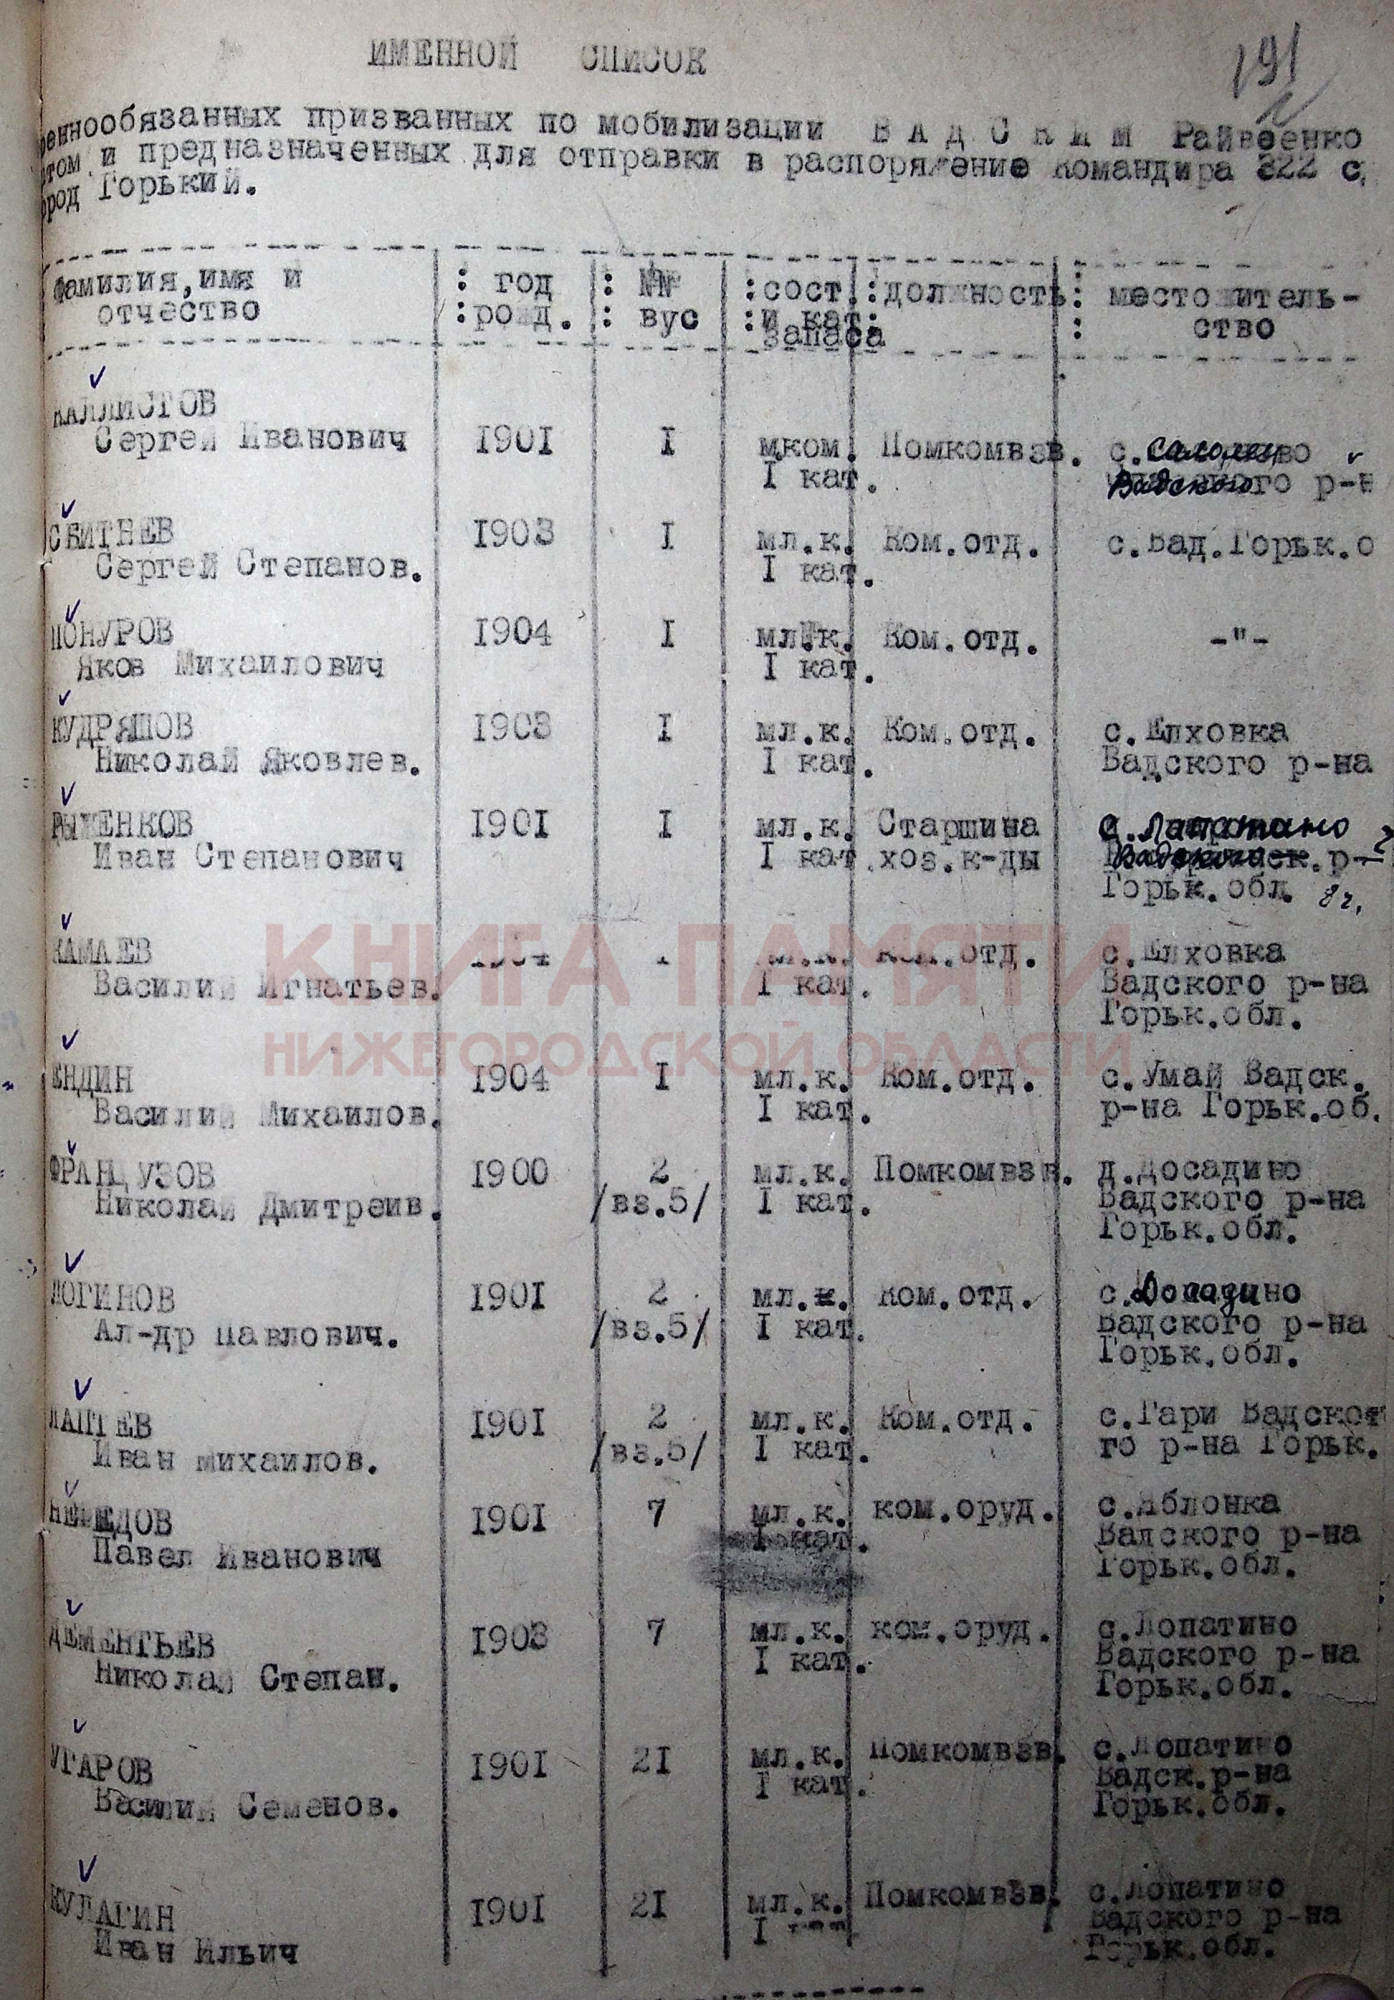 191
ИМЕННОЙ СПИСОК
военнообязанных призванных по мобилизации ВАДСКИМ Райвоенко
и предназначенных для отправки в распоряжение Командира 322 с
город Горький.
Фамилия, имя и : год : №№ :сост.:должность: местожитель-
отчество :рожд. : вус :и кат. : ство
запаса
КАЛЛИСТОВ
Сергей Иванович 1901 I мком. Помкомвзв. с.
I кат. Вадского р-н
СБИТНЕВ 1903 I мл.к. Ком.отд. с.Вад.Горьк.о
Сергей Степанов. I кат.
ПОНУРОВ 1904 I мл.к. Ком.отд. -"-
Яков Михаилович I кат.
КУДРЯШОВ 1903 I мл.к. Ком.отд. с.Елховка
Николай Яковлев. I кат. Вадского р-на
РЫЖЕНКОВ 1901 I мл.к. Старшина с. Лапатино
Иван Степанович I кат. хоз.к-ды Вадского р-
Горьк.обл. 8 г.
КАМАЕВ 1904 I мл.к. Ком.отд. с.Елховка
Василий Игнатьев. I кат. Вадского р-на
Горьк.обл.
КНИГА ПАМЯТИ
НИЖЕГОРОДСКОЙ ОБЛАСТИ
ЕНДИН 1904 I мл.к. Ком.отд. с.Умай Вадск.
Василий Михаилов. I кат. р-на Горьк.об.
ФРАНЦУЗОВ 1900 2 мл.к. Помкомвзв. д.Досадино
Николай Дмитреив. /вз.5/ I кат. Вадского р-на
Горьк.обл.
ЛОГИНОВ 1901 2 мл.к. Ком.отд. с.Досадино
Ал-др Павлович. /вз.5/ I кат. Вадского р-на
Горьк.обл.
ЛАПТЕВ 1901 2 мл.к. Ком.отд. с.Гари Вадског
Иван Михаилов. /вз.5/ I кат. го р-на Горьк.
1901 7 мл.к. ком.оруд. с.Яблонка
Павел Иванович I кат. Вадского р-на
Горьк.обл.
ДЕМЕНТЬЕВ 1903 7 мл.к. ком.оруд. с.Лопатино
Николай Степан. I кат. Вадского р-на
Горьк.обл.
УГАРОВ 1901 21 мл.к. Помкомвзв. с.Лопатино
Василий Семенов. I кат. Вадск.р-на
Горьк.обл.
КУЛАГИН 1901 21 мл.к. Помкомвзв. с.Лопатино
Иван Ильич I кат Вадского р-на
Горьк.обл.